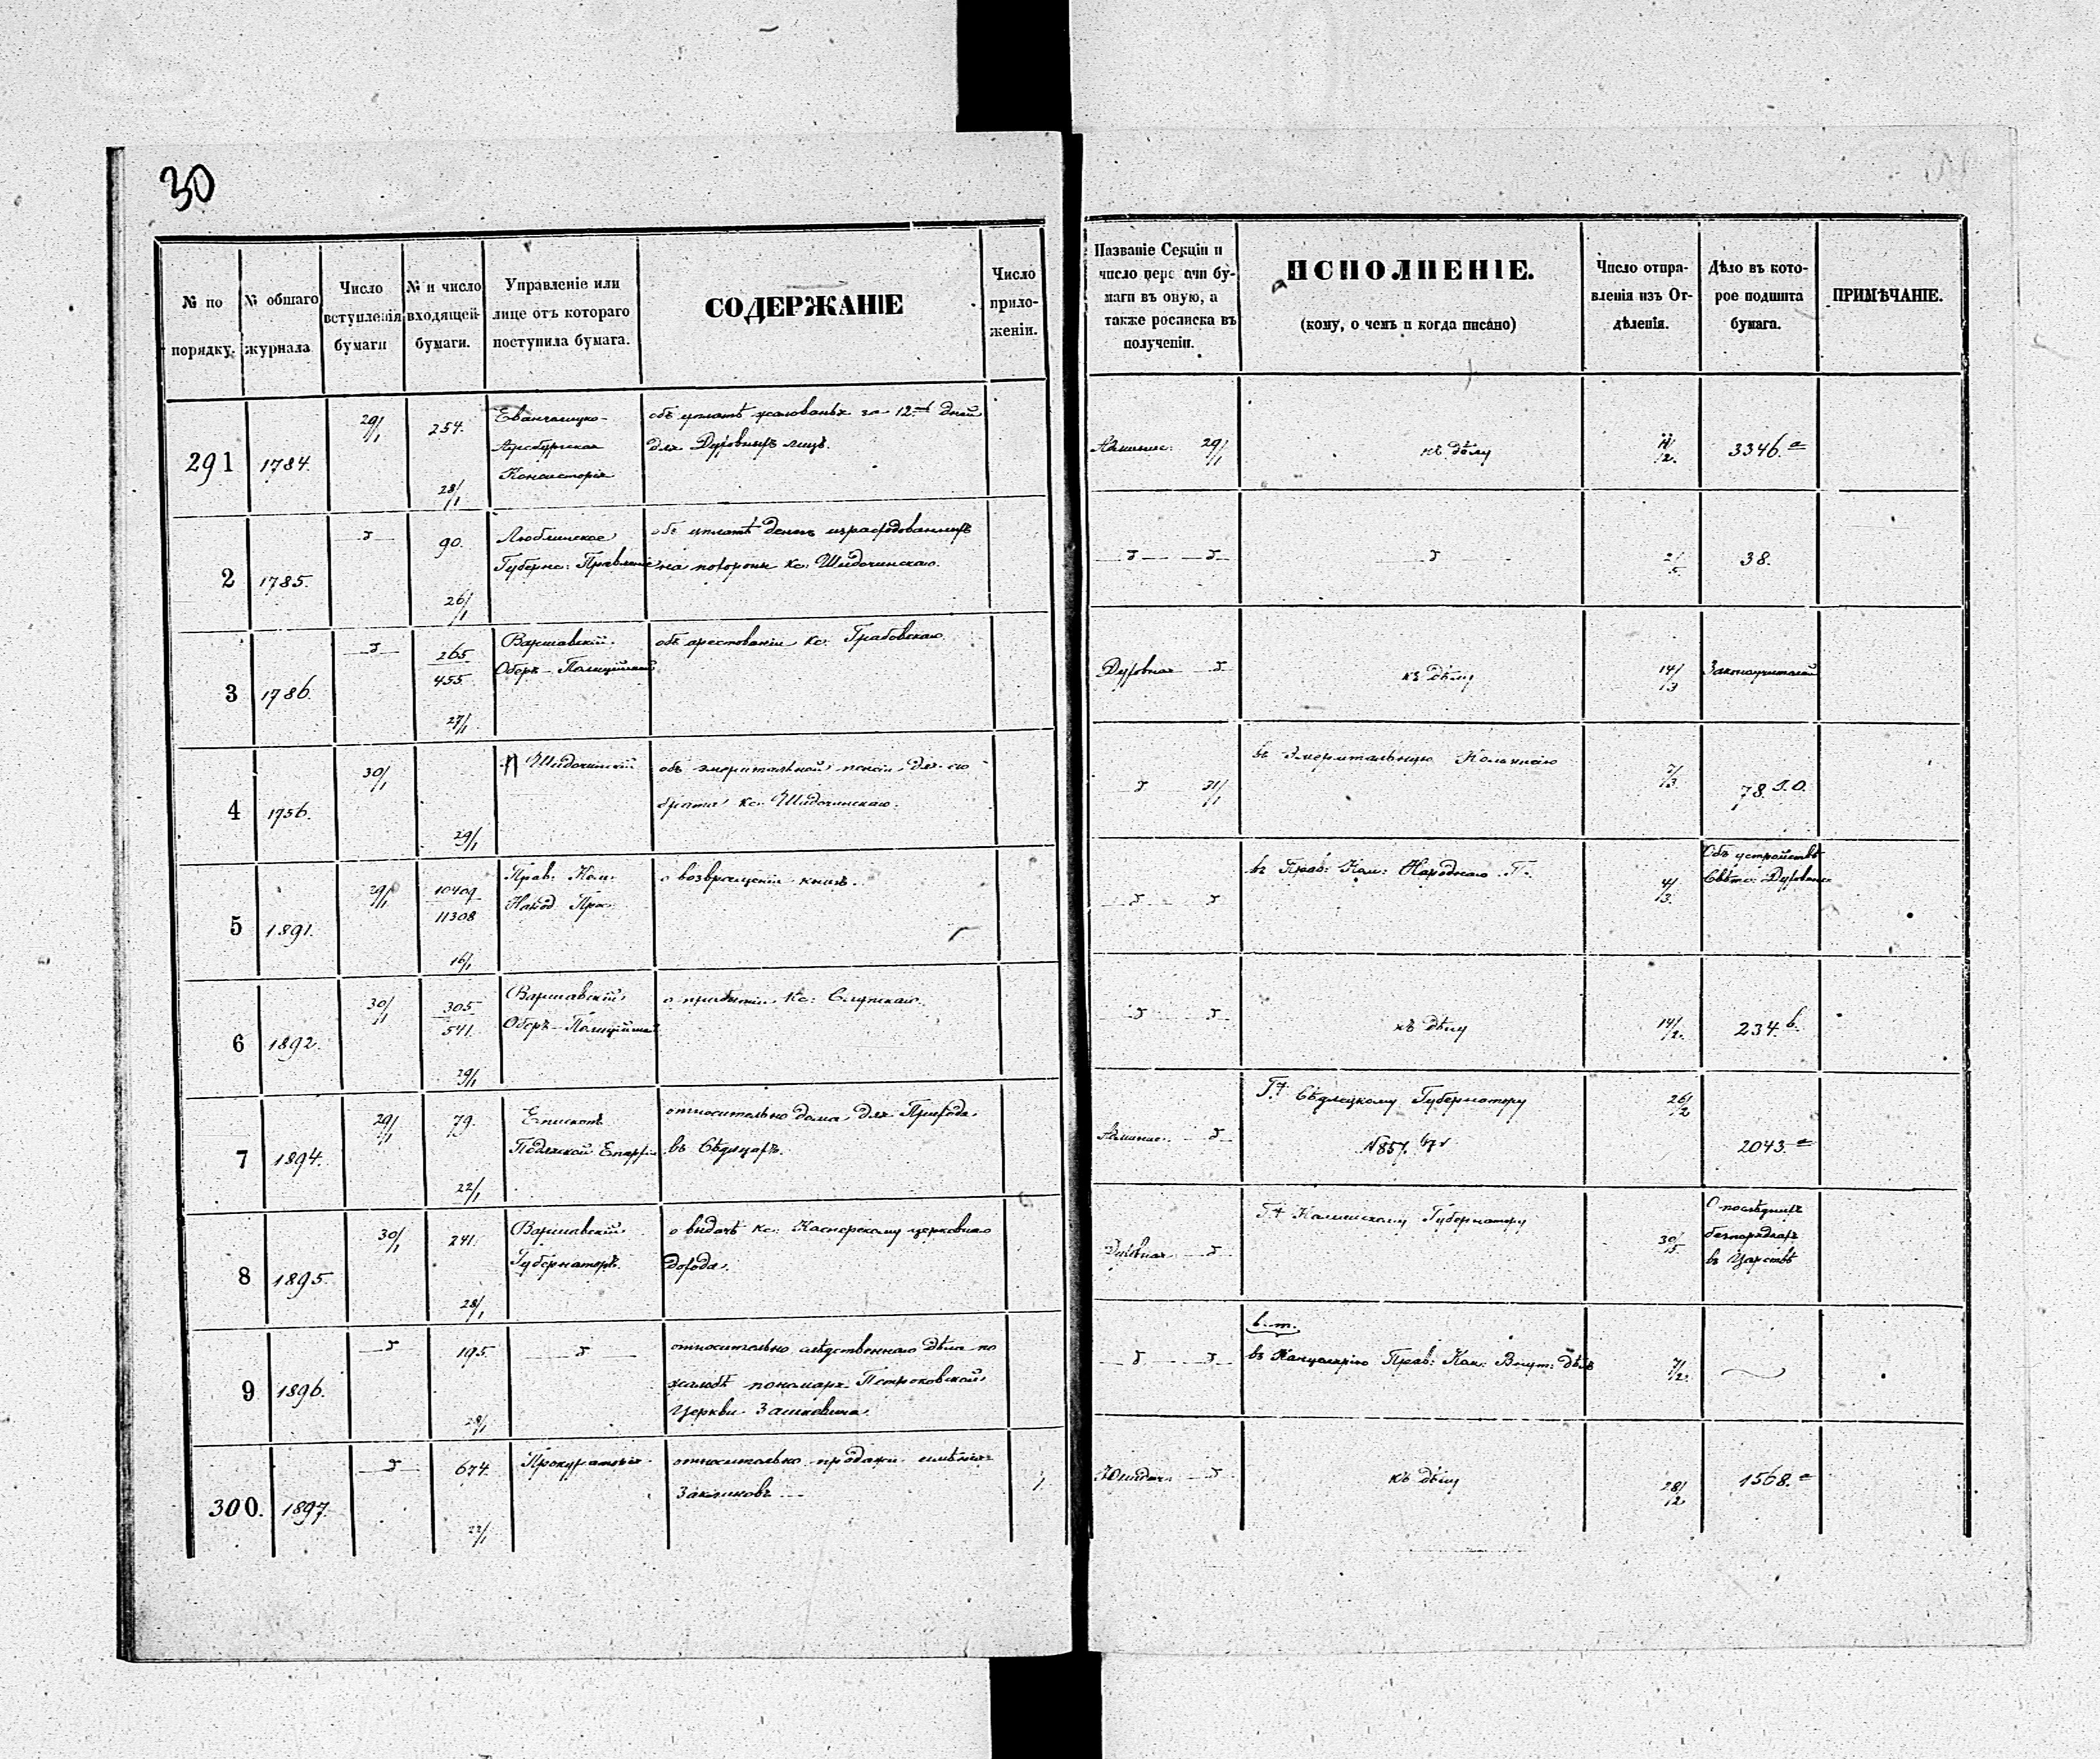 30
№ по порядку.
№ общаго журнала
Число вступленія бумаги
№ и число входящей бумаги.
Управленіе или лице отъ котораго поступила бумага.
СОДЕРЖАНІЕ
Число приложеніи.
Названіе Секціи и число пере ачи бумаги въ оную, а также росписка въ полученіи.
ИСПОЛНЕНІЕ.
(кому, о чемъ и когда писано)
Число отправленія изъ Отдѣленія.
Дѣло въ которое подшита бумага.
ПРИМѢЧАНІЕ.
291 1784. 29/1 254. 28/1
Консисторія
объ уплатѣ жалованья за 12 дней
для Духовныхъ лицъ.
29/1 къ дѣлу 3346.а
2 1785. 90. 26/1
Люблинское
Губернс: Правленіе
объ уплатѣ денегъ израсходованныхъ
на похороны кс:
38.
3 1786. 265/455. 27/1
Варшавскій
Оберъ-Полиціймей
объ арестованіи кс: Грабовскаго
Духовная къ дѣлу 14/3
4 1756. 30/1 29/1
объ эмеритальной пенсіи для его
брата кс:
31/1 въ Эмеритальную Коммисію 7/3 78.
5 1891. 29/1 10409/11308 16/1
Прав: Ком:
Народ Прос:
о возвращеніи книгъ.
въ Прав: Ком: Народнаго П. 4/3.
Объ устройствѣ
Свѣтс: Духовен:
6 1892. 30/1 305/541. 29/1
Варшавскій
Оберъ-Полиціймей
о прибытіи Кс: Слупскаго.
къ дѣлу 14/2. 234.b.
7 1894. 29/1 79. 22/1
Епископъ
Подляской Епархіи
относительно дома для Прихода
въ Сѣдлцахъ.
Сѣдлецкому Губернатору
№857. 26/2 2043.а
8 1895. 30/1 241. 28/1
Варшавскій
Губернаторъ.
о выдачѣ кс: Касперскому церковнаго
дохода.
Духовная Губернатору 30/5
О послѣднихъ
безпорядкахъ
въ Царствѣ
9 1896. 195. 28/1
относительно слѣдственнаго дѣла по
жалобѣ пономаря Петроковской
Церкви
въ Канцелярію Прав: Ком: Внут: Дѣлъ 7/2.
300. 1897. 674. 22/1
Прокураторія
относительно продажи имѣнія
Закликовъ 1
къ дѣлу 28/12 1568.